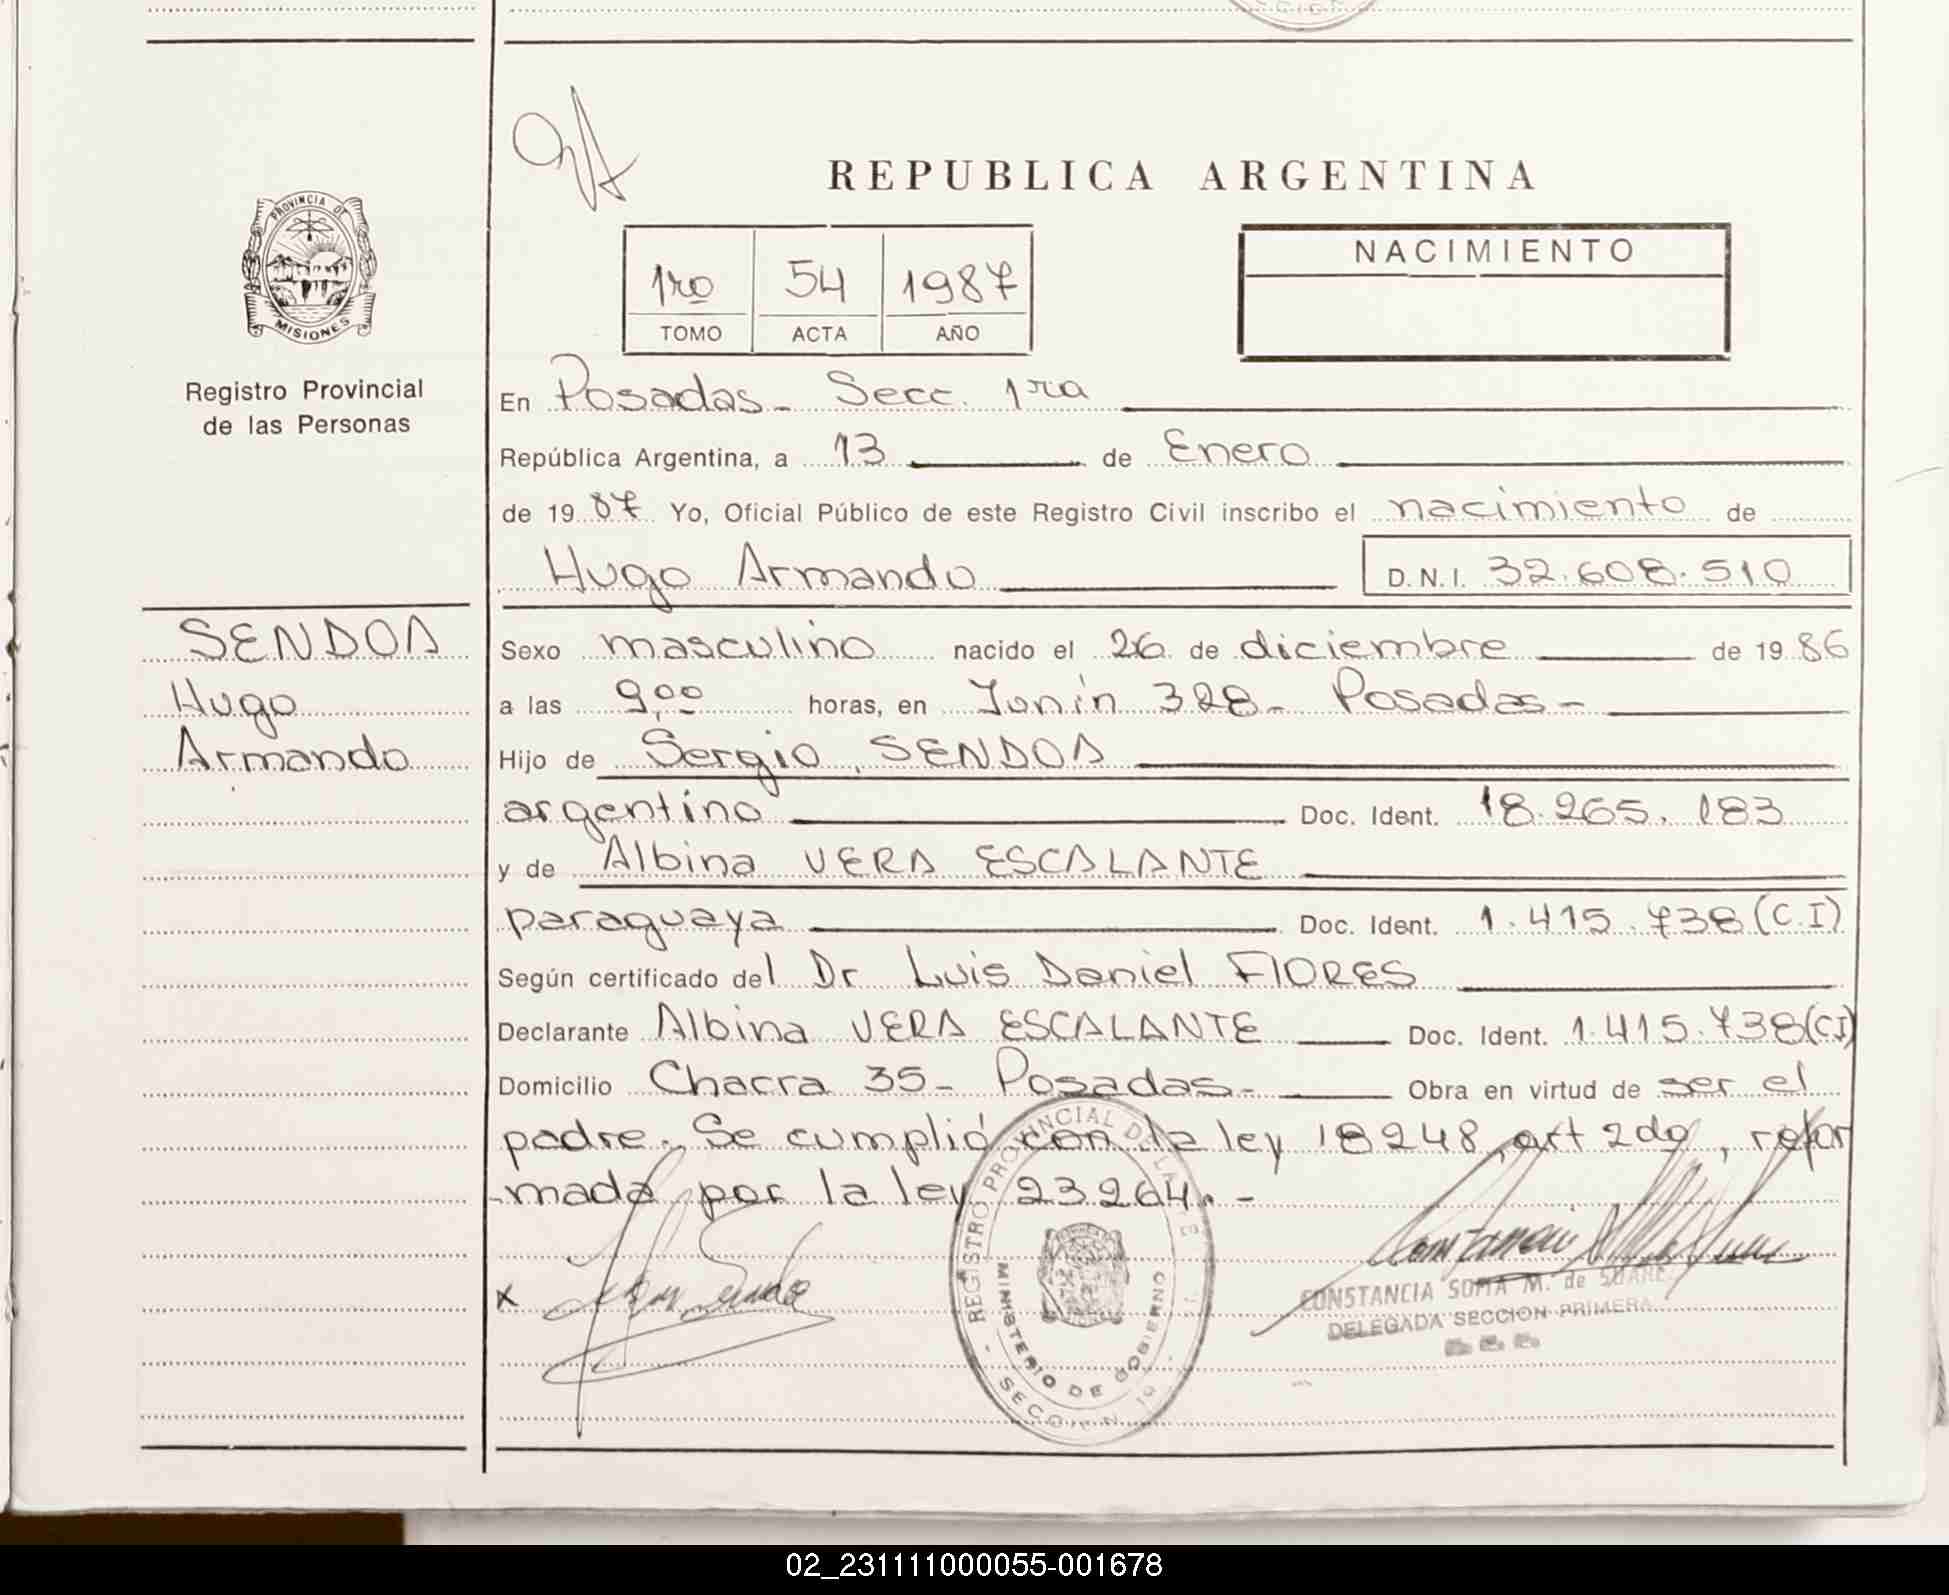 REPUBLICA ARGENTINA
PROVINCIA DE
MISIONES
Registro Provincial
de las Personas
1ro 54 1987
TOMO ACTA AÑO
NACIMIENTO
En Posadas - Secc. 1ra
República Argentina, a 13 de Enero
de 19 87 Yo, Oficial Público de este Registro Civil inscribo el nacimiento de
Hugo Armando D.N.I. 32.608.510
SENDOA
Hugo
Armando
Sexo masculino nacido el 26 de diciembre de 19 86
a las 9,00 horas, en Junín 328 - Posadas -
Hijo de Sergio SENDOA
argentino Doc. Ident. 18.265.183
y de Albina VERA ESCALANTE
paraguaya Doc. Ident. 1.415.738 (C.I)
Según certificado del Dr Luis Daniel FLORES
Declarante Albina VERA ESCALANTE Doc. Ident. 1.415.738 (CI)
Domicilio Chacra 35 - Posadas - Obra en virtud de ser el
padre. Se cumplió con la ley 18248, art 2do, refor
-mada por la ley 23264. -
REGISTRO PROVINCIAL DE LAS
MINISTERIO DE GOBIERNO
x
CONSTANCIA SOFIA M. de SUAREZ
DELEGADA SECCION PRIMERA
02_231111000055-001678